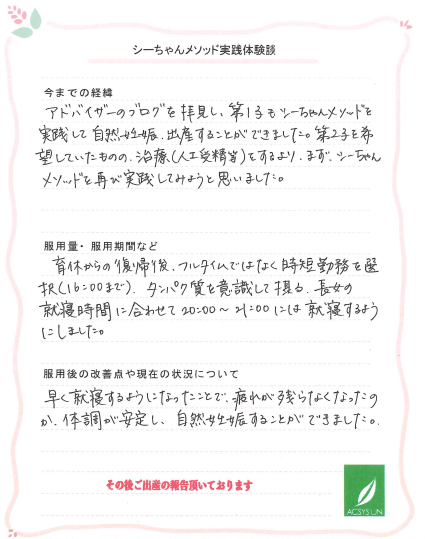 シーちゃんメソッド実践体験談
今までの経緯
アドバイザーのブログを拝見し、第1子もシーちゃんメソッドを
実践して自然妊娠、出産することができました。第2子を希
望していたものの、治療(人工受精等)をするより、まず、シーちゃん
メソッドを再び実践してみようと思いました。
服用量・服用期間など
育休からの復帰後、フルタイムではなく時短勤務を選
択(16:00まで)、タンパク質を意識して摂る、長女の
就寝時間に合わせて20:00～21:00には就寝するよう
にしました。
服用後の改善点や現在の状況について
早く就寝するようになったことで、疲れが残らなくなったの
か、体調が安定し、自然妊娠することができました。
その後ご出産の報告頂いております
ACSYSUN